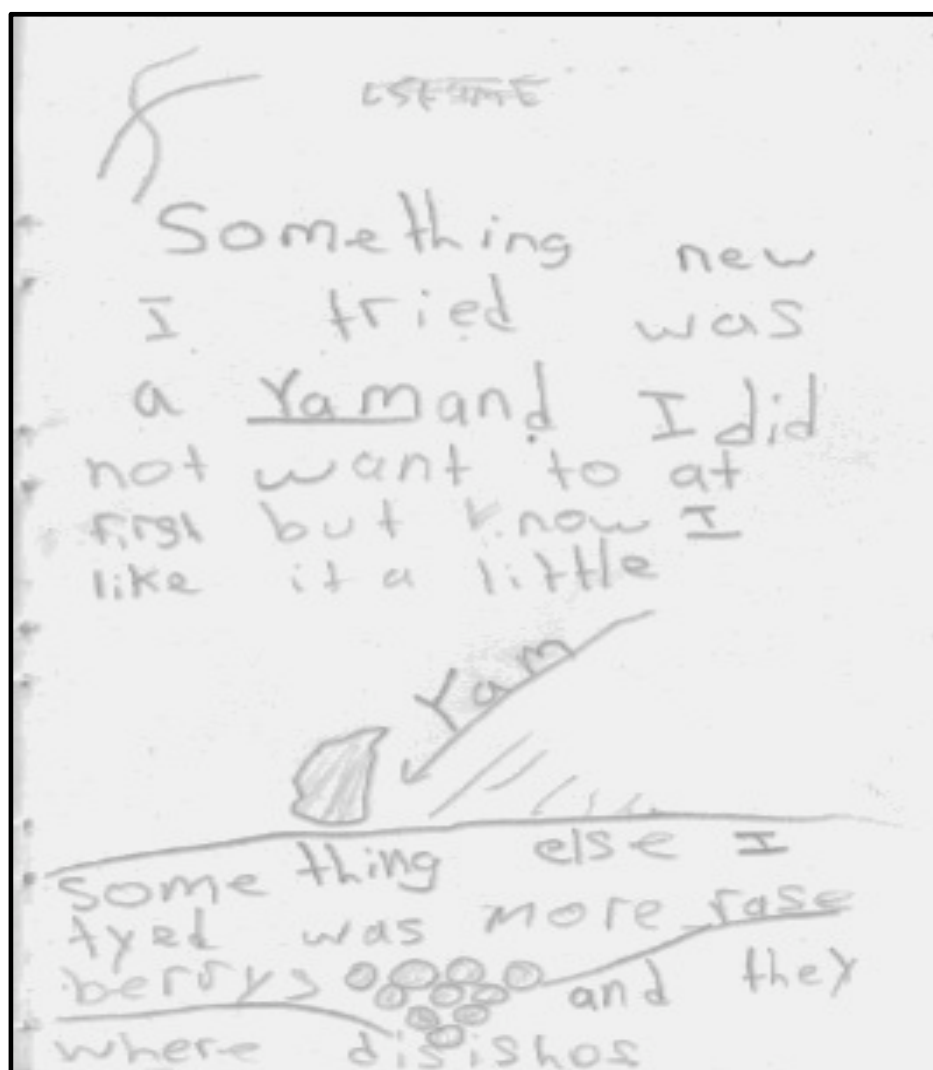 Something new
I tried was
a Yam and I did
not want to at
first but know I
like it a little
Yam
some thing else I
tyed was more rase
berrys and they
where disishos